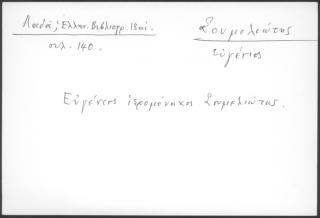 Λαδᾶ, Ἑλλην. Βιβλιογρ. 18 αἰ.
σελ. 140.
Σουμελιώτης
Εὐγένιος
Εὐγένιος ἱερομόναχος Σουμελιώτης.